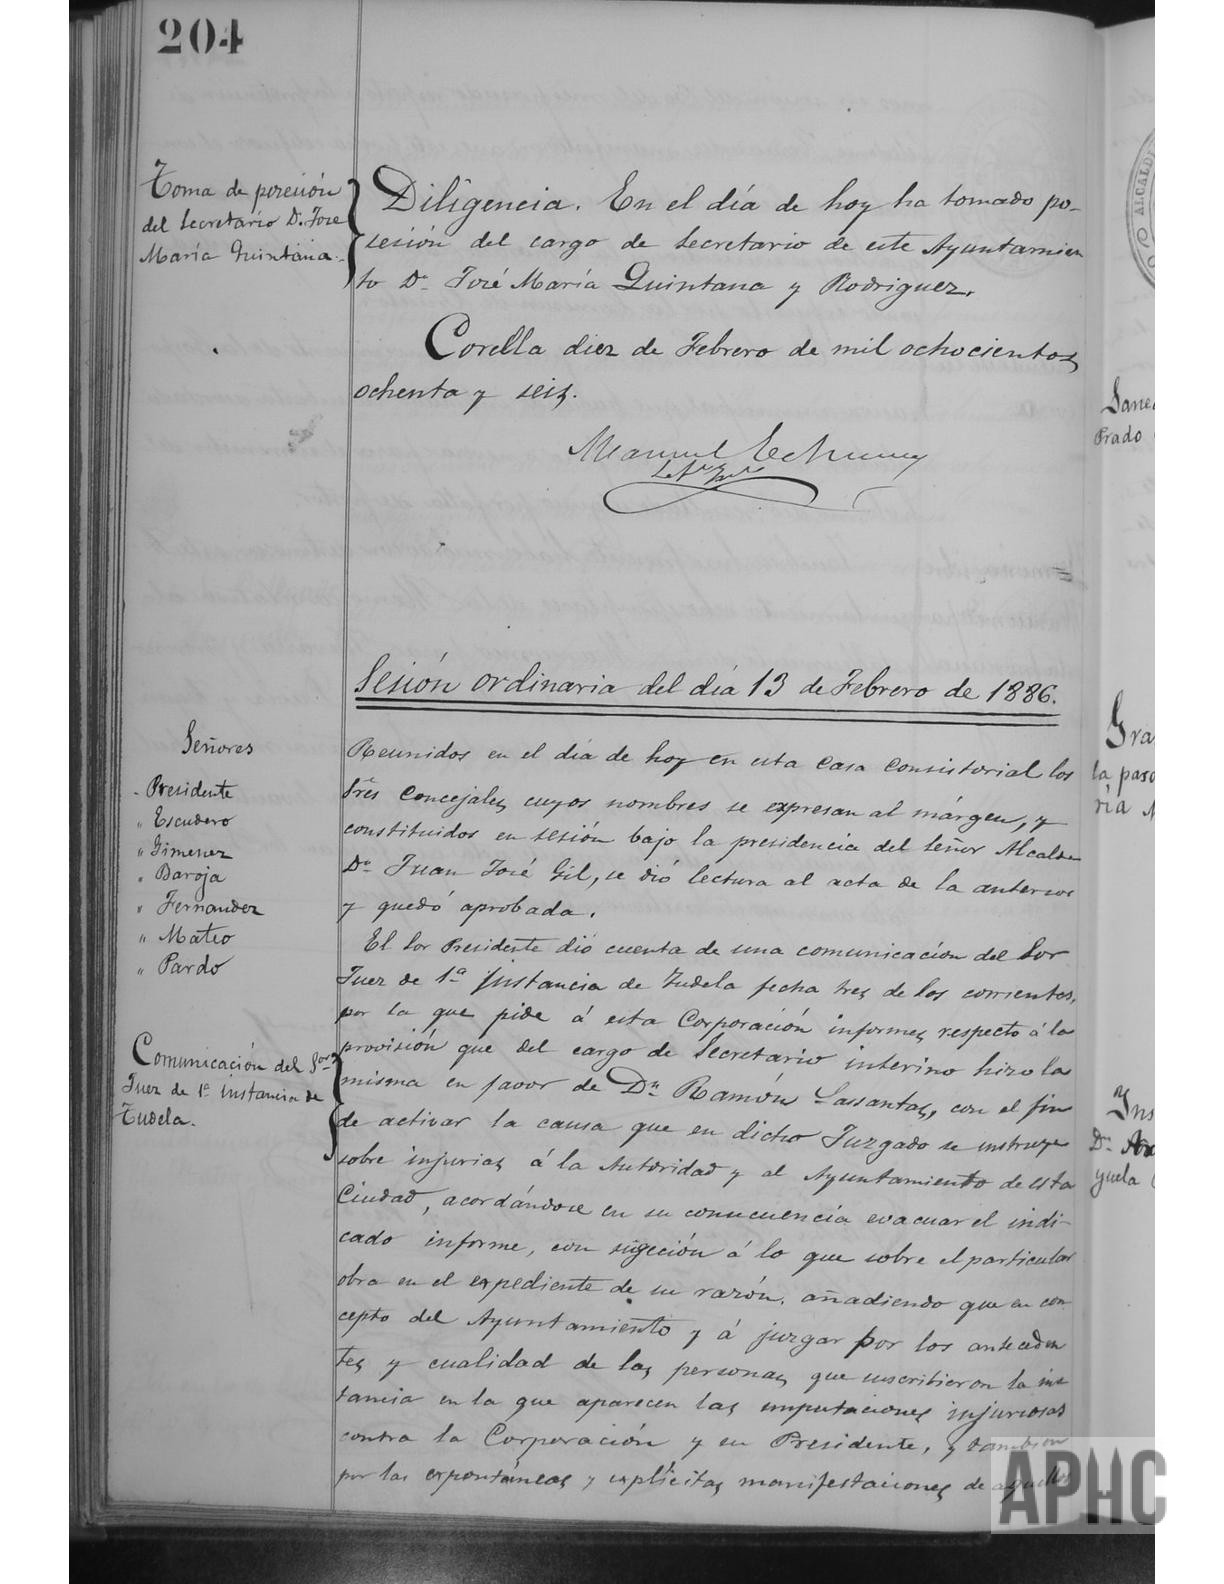 204
Toma de posesión
del Secretario Dn. Jose
María Quintana.
Diligencia. En el día de hoy ha tomado po-
sesión del cargo de Secretario de este Ayuntamien
to Dn. José María Quintana y Rodriguez.
Corella diez de Febrero de mil ochocientos
ochenta y seis.
Manuel
Sesión ordinaria del día 13 de Febrero de 1886.
Señores
Presidente
" Escudero
" Gimenez
" Baroja
" Fernandez
" Mateo
" Pardo
Reunidos en el día de hoy en esta Casa Consistorial los
Srēs Concejales cuyos nombres se expresan al márgen, y
constituidos en sesión bajo la presidencia del Señor Alcalde
Dn. Juan José Gil, se dió lectura al acta de la anterior
y quedó aprobada.
El Sor Presidente dió cuenta de una comunicación del Sor
Juez de 1ª Instancia de Tudela fecha tres de los corrientes,
por la que pide á esta Corporación informes respecto á la
provisión que del cargo de Secretario interino hizo la
misma en favor de Dn. Ramón Lassantas, con el fin
de activar la causa que en dicho Juzgado se instruye
sobre injurias á la Autoridad y al Ayuntamiento de esta
Ciudad, acordándose en su consecuencia evacuar el indi-
cado informe, con sugeción á lo que sobre el particular
obra en el expediente de su razón, añadiendo que en con
cepto del Ayuntamiento y á juzgar por los anteceden
tes y cualidad de las personas que suscribieron la ins
tancia en la que aparecen las imputaciones injuriosas
contra la Corporación y su Presidente, y tambien
por las expontáneas y explícitas manifestaciones de aquellos
Comunicación del Sor.
Juez de 1ª instancia de
Tudela.
Prado
Gra
la paro
ría M
Ins
Dn.
yuela
APHC